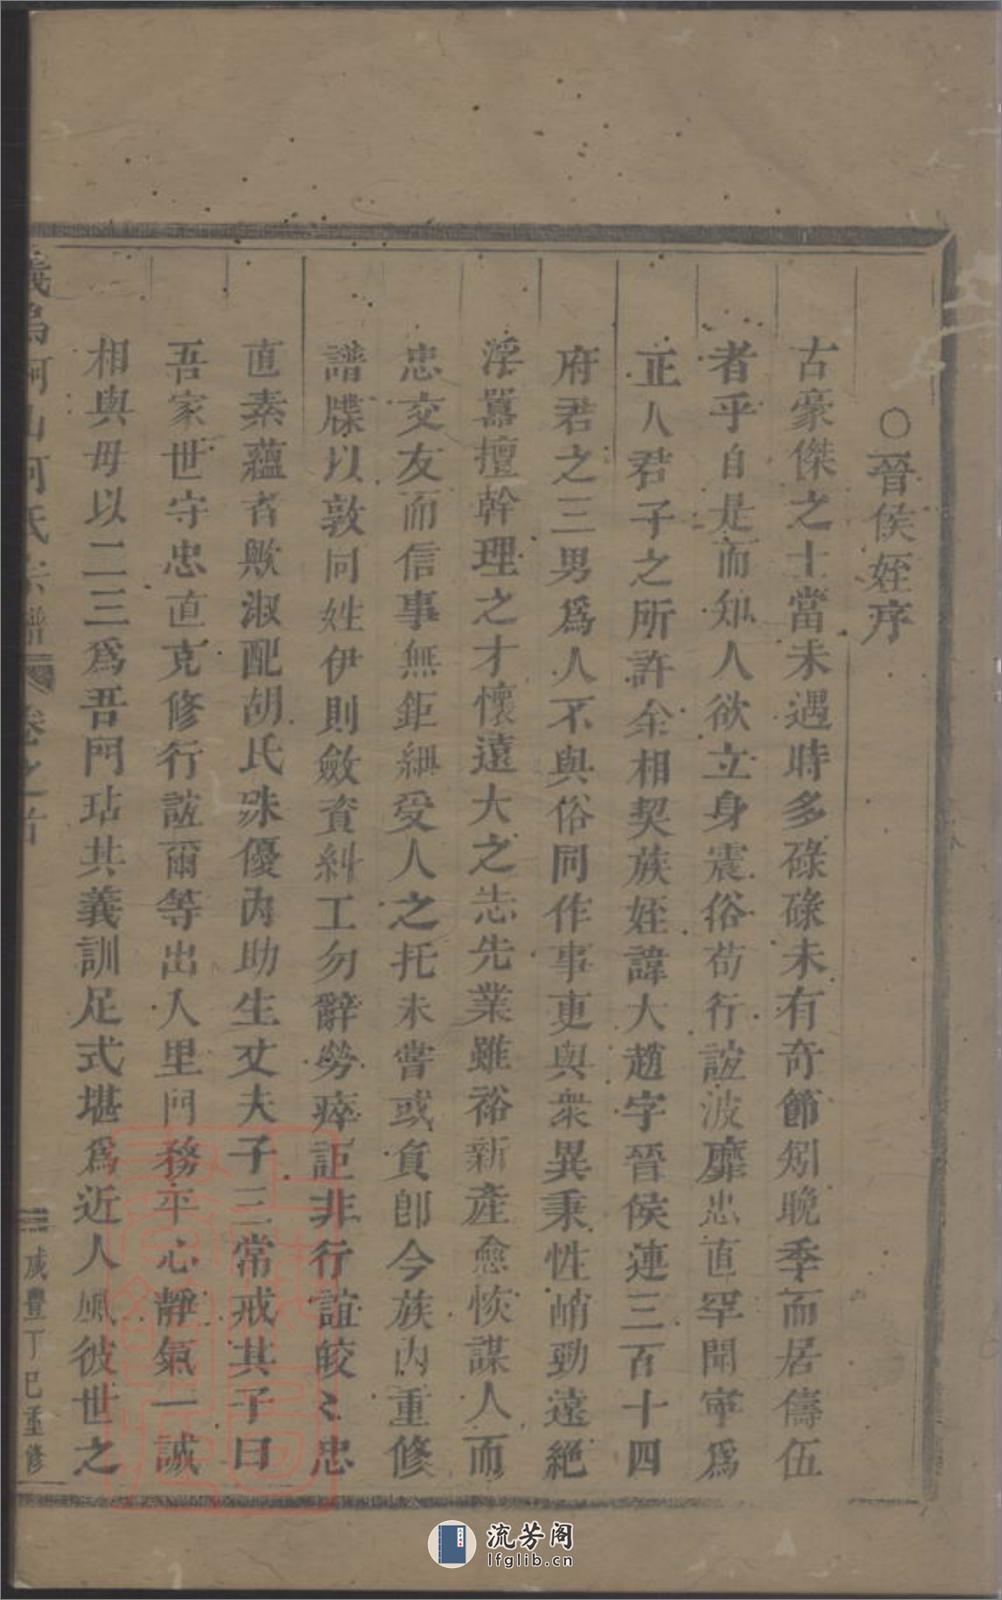 ○晉侯姪序
古豪傑之士當未遇時多碌碌未有奇節矧晚季而居儔伍
者乎自是而知人欲立身震俗苟行誼波靡忠直罕聞寧為
正人君子之所許余相契族姪諱大趙字晉侯連三百十四
府君之三男爲人不與俗同作事更與衆異秉性峭勁遠絶
浮囂擅幹理之才懷遠大之志先業雖裕新產愈恢謀人而
忠交友而信事無鉅細受人之托未嘗或負卽今族內重修
譜牒以敦同姓伊則斂資糾工勿辭勞瘁詎非行誼皎〻忠
直素蘊者歟淑配胡氏殊優內助生丈夫子三常戒其子曰
吾家世守忠直克修行誼爾等出入里門務平心靜氣一誠
相與毋以二三爲吾門玷其義訓足式堪爲近人風彼世之
義烏柯山何氏宗譜 卷之首 咸豐丁巳重修
流芳阁
lfglib.cn